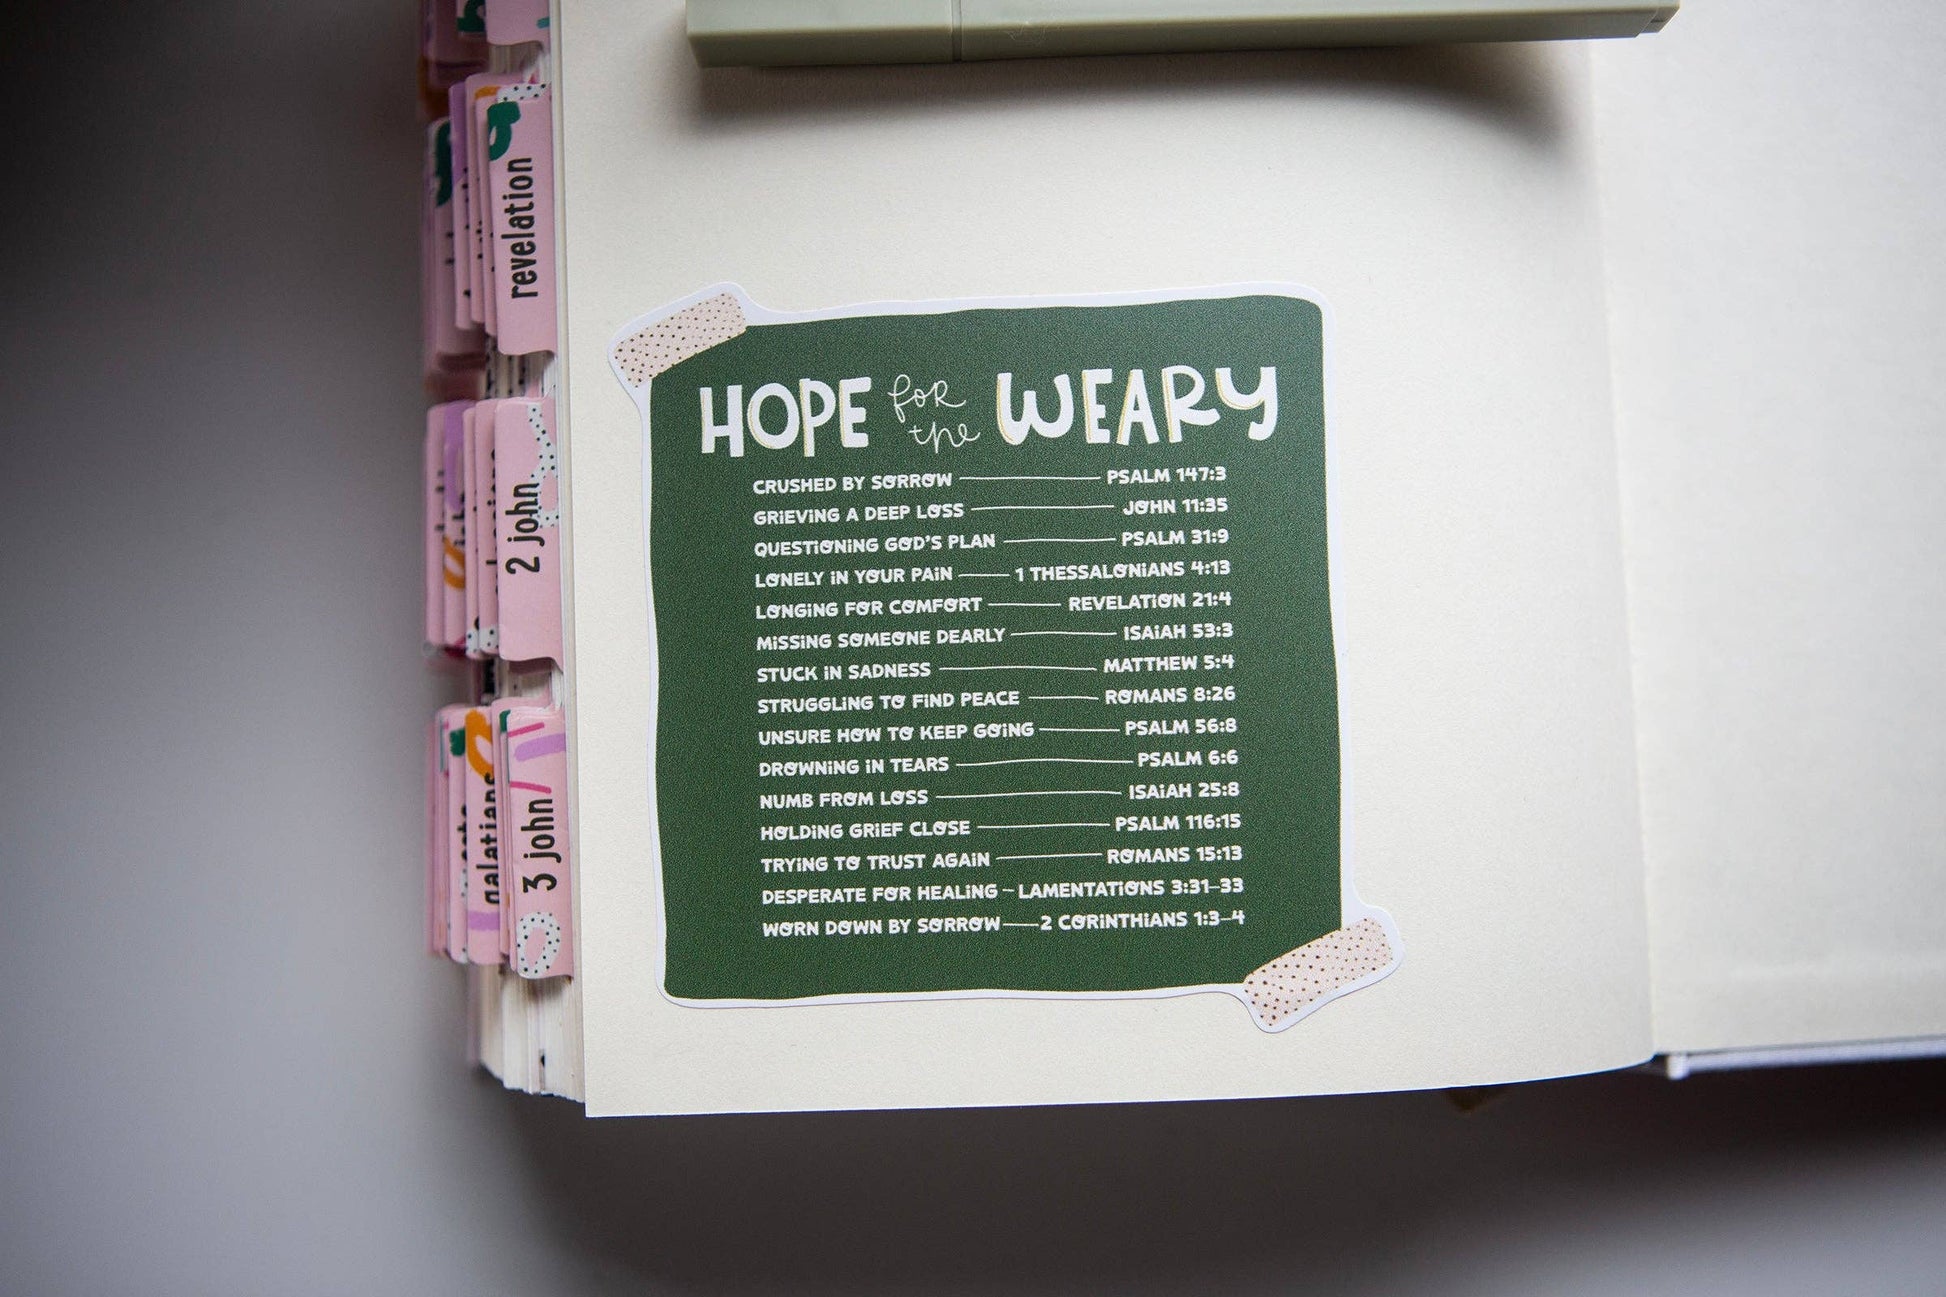 HOPE for the WEARY
CRUSHED BY SORROW — PSALM 147:3
GRIEVING A DEEP LOSS — JOHN 11:35
QUESTIONING GOD'S PLAN — PSALM 31:9
LONELY IN YOUR PAIN — 1 THESSALONIANS 4:13
LONGING FOR COMFORT — REVELATION 21:4
MISSING SOMEONE DEARLY — ISAIAH 53:3
STUCK IN SADNESS — MATTHEW 5:4
STRUGGLING TO FIND PEACE — ROMANS 8:26
UNSURE HOW TO KEEP GOING — PSALM 56:8
DROWNING IN TEARS — PSALM 6:6
NUMB FROM LOSS — ISAIAH 25:8
HOLDING GRIEF CLOSE — PSALM 116:15
TRYING TO TRUST AGAIN — ROMANS 15:13
DESPERATE FOR HEALING — LAMENTATIONS 3:31–33
WORN DOWN BY SORROW — 2 CORINTHIANS 1:3–4
revelation
2 john
galatians
3 john